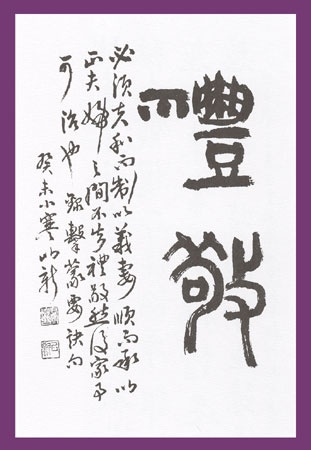 禮敬
必須夫和而制以義妻順而承以
正夫婦之間不失禮敬然後家事
可治也 錄擊蒙要訣句
癸未小寒